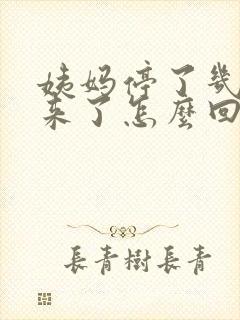 姨妈停了几
来了怎麼回
長青樹長青